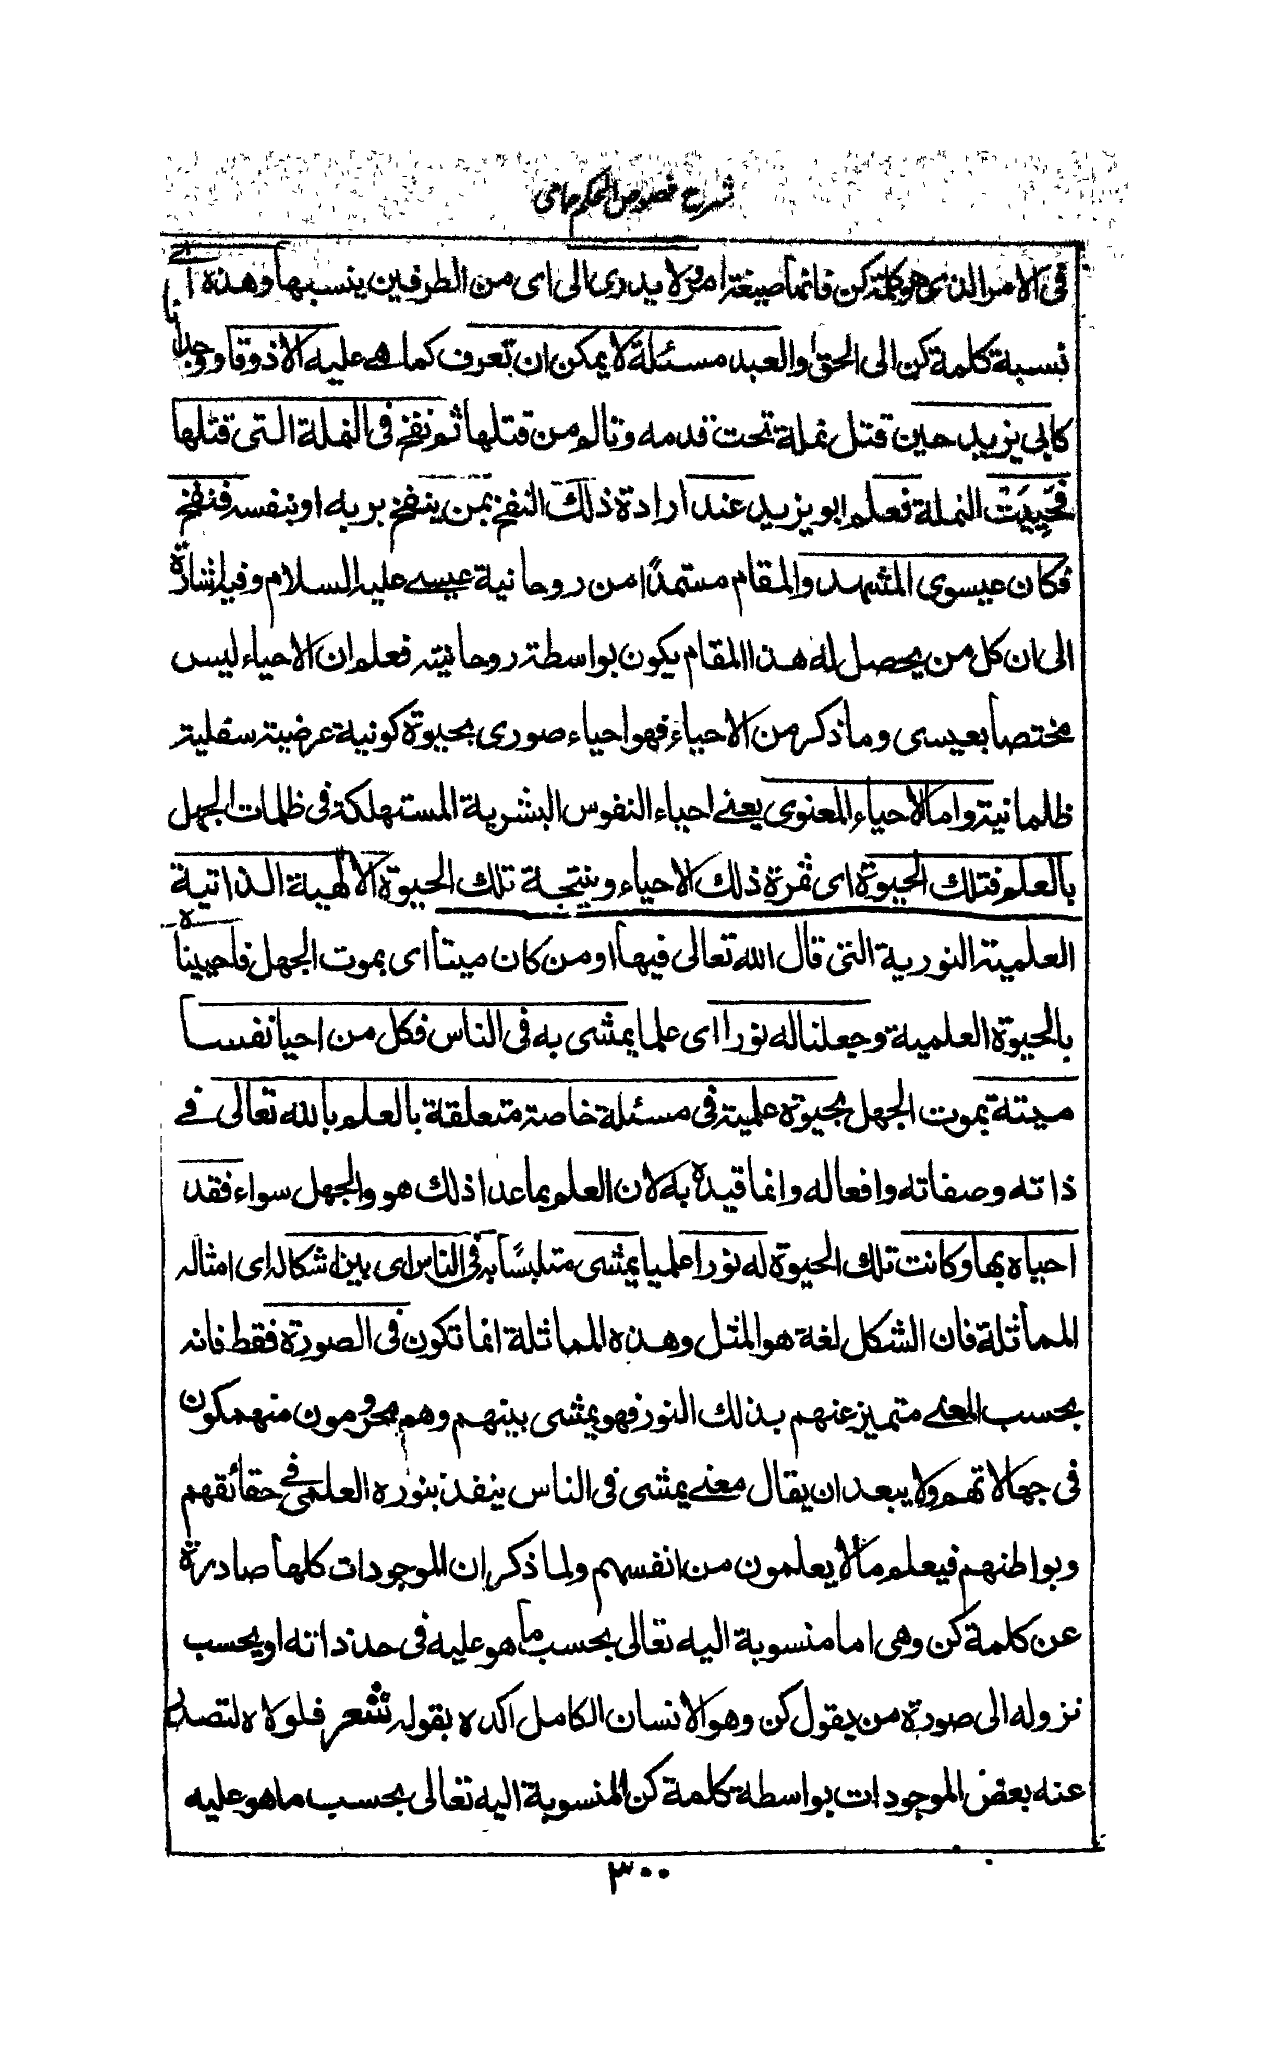 شرح فصوص الحكم جامى
فى الامر الذى هو كلمة كن فانها صيغة امر ولا يدرى الى اى من الطرفين ينسبها وهذه اى
نسبة كلمة كن الى الحق والعبد مسئلة لا يمكن ان تعرف كما هے عليه الا ذوقا ووجدانا
كابى يزيد حين قتل نملة تحت قدمه وتالم من قتلها ثم نفخ فى النملة التى قتلها
فحَيِيَت النملة فعلم ابو يزيد عند ارادة ذلك النفخ بمن ينفخ بربه او بنفسه فنفخ
فكان عيسوى المشهد والمقام مستمدًا من روحانية عيسے عليه السلام وفيه اشارة
الى ان كل من يحصل له هذا المقام يكون بواسطة روحانيته فعلم ان الاحياء ليس
مختصا بعيسى وما ذكر من الاحياء فهو احياء صورى بحيوة كونية عرضية سفلية
ظلمانية واما الاحياء المعنوى يعنے احياء النفوس البشرية المستهلكة فى ظلمات الجهل
بالعلم فتلك الحيوة اى ثمرة ذلك الاحياء ونتيجة تلك الحيوة الالهية الذاتية
العلمية النورية التى قال الله تعالى فيها او من كان ميتا اى بموت الجهل فاحييناه
بالحيوة العلمية وجعلنا له نورا اى علما يمشى به فى الناس فكل من احيا نفسا
ميتة بموت الجهل بحيوة علمية فى مسئلة خاصة متعلقة بالعلم بالله تعالى فے
ذاته وصفاته وافعاله وانما قيده به لان العلم بما عدا ذلك هو والجهل سواء فقد
احياه بها وكانت تلك الحيوة له نورا علميا يمشى متلبسًا به فى الناس اى بين اشكاله اى امثاله
المماثلة فان الشكل لغة هو المثل وهذه المماثلة انما تكون فى الصورة فقط فانه
بحسب المعنے متميز عنهم بذلك النور فهو يمشى بينهم وهم محرومون منهمكون
فى جهالاتهم ولا يبعد ان يقال معنے يمشى فى الناس ينفذ بنوره العلمى فے حقائقهم
وبواطنهم فيعلم ما لا يعلمون من انفسهم ولما ذكر ان الموجودات كلها صادرة
عن كلمة كن وهى اما منسوبة اليه تعالى بحسب ما هو عليه فى حد ذاته او بحسب
نزوله الى صورة من يقول كن وهو الانسان الكامل اكده بقوله شعر فلولاه لتصدر
عنه بعض الموجودات بواسطة كلمة كن المنسوبة اليه تعالى بحسب ما هو عليه
٣٠٠